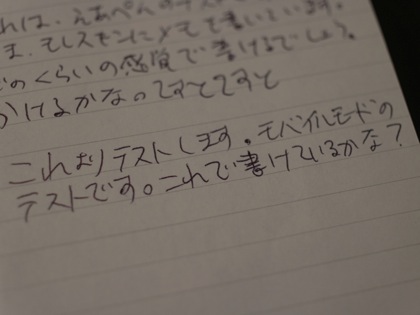 れは、えあぺんのテス
ま、モレスキンにメモを書いています。
どのくらいの感覚で書けるでしょう。
かけるかな。てすとてすと
これよりテストします。モバイルモードの
テストです。これで書けているかな？